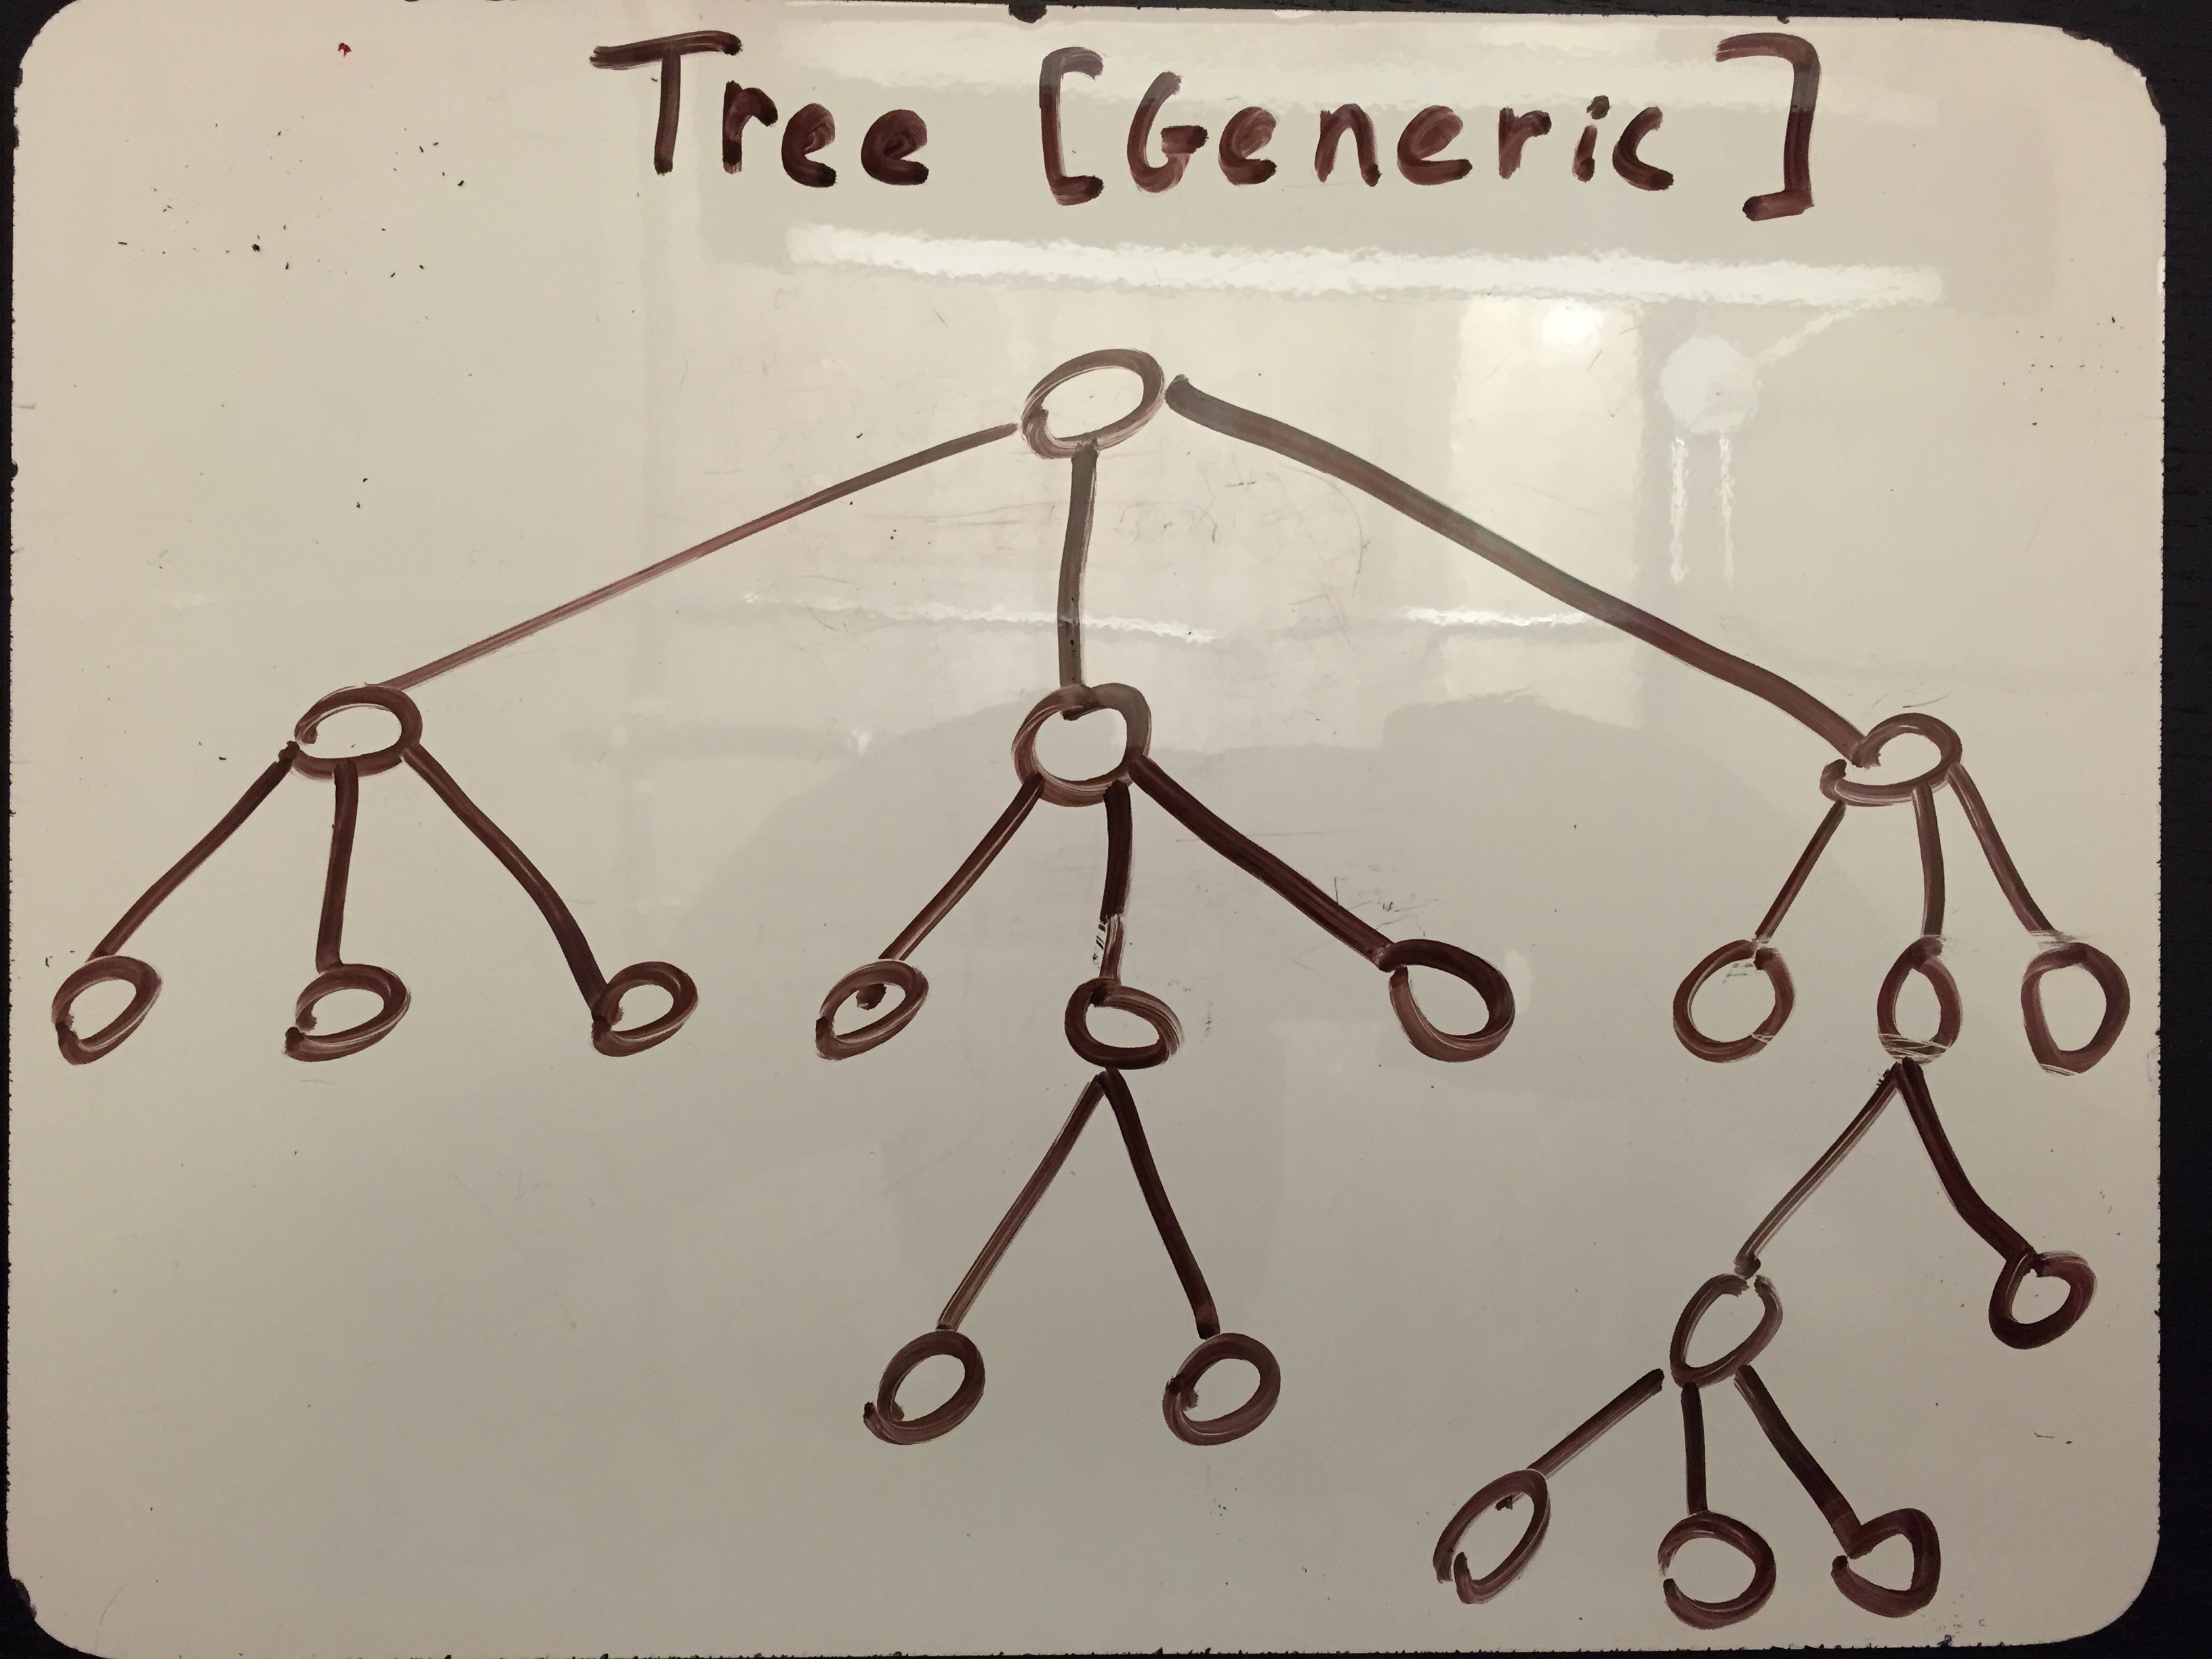 Tree [Generic]